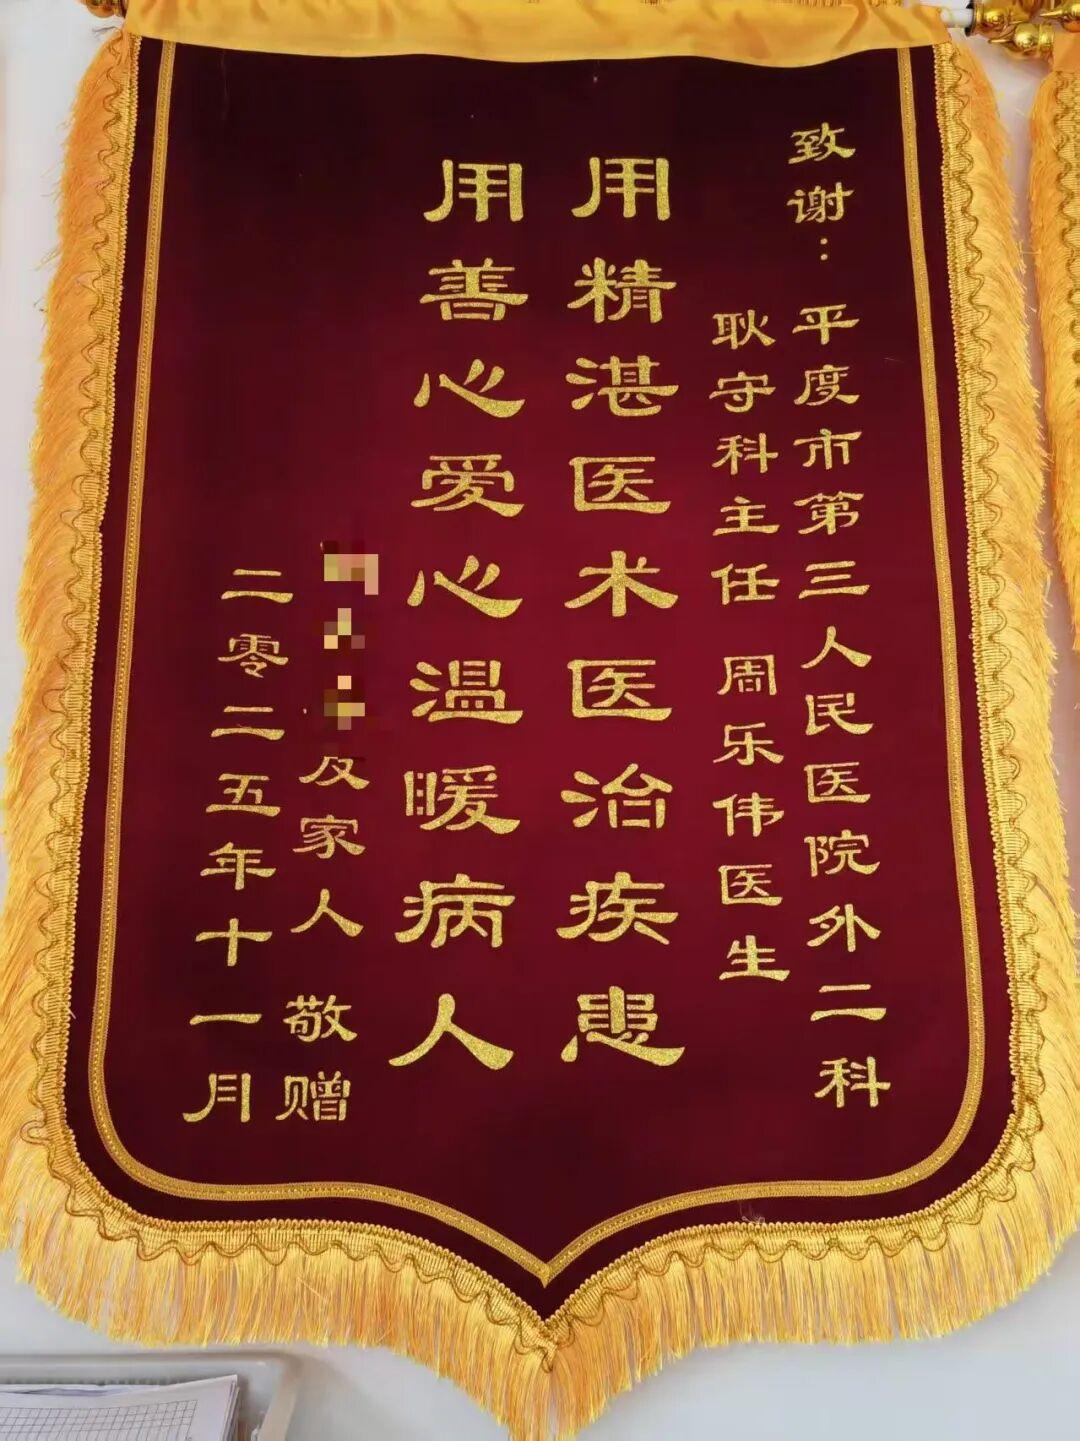 致谢：平度市第三人民医院外二科
耿守科主任 周乐伟医生
用精湛医术医治疾患
用善心爱心温暖病人
及家人 敬赠
二零二五年十一月